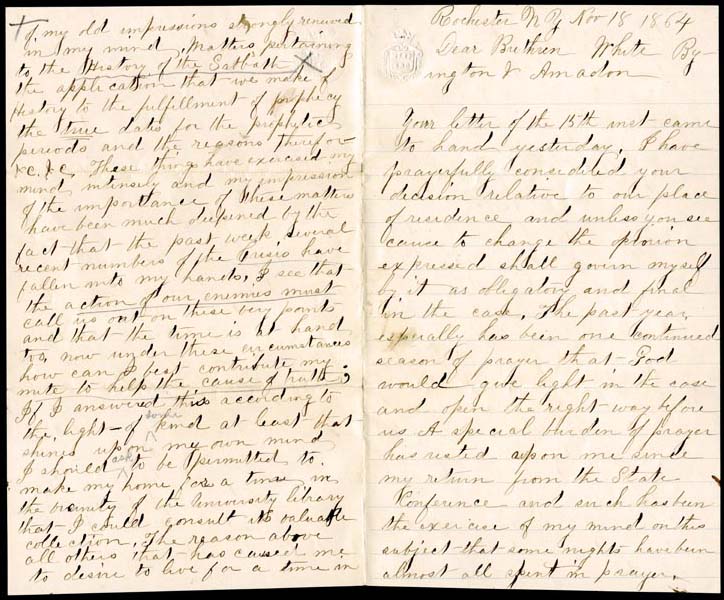 Rochester N Y Nov 18 1864
Dear Brethren White By
ington & Amadon
Your letter of the 15th inst came
to hand yesterday. I have
prayerfully considered your
decision relative to our place
of residence and unless you see
cause to change the opinion
expressed shall govern myself
by it as obligatory and final
in the case. The past year
especially has been one continued
season of prayer that God
would give light in the case
and open the right way before
us A special burden of prayer
has rested upon me since
my return from the State
Conference and such has been
the exercise of my mind on this
subject that some nights have been
almost all spent in prayer.
of my old impressions strongly renewed
in my mind. Matters pertaining
to the History of the Sabbath
the application that we make of
History to the fulfillment of prophecy
the true dates for the prophetic
periods and the reasons therefor
&c. &c. These things have exercised my
mind intensely and my impression
of the importance of these matters
have been much deepened by the
fact that the past week several
recent numbers of the Crisis have
fallen into my hands. I see that
the action of our enemies must
call us out on these very points
and that the time is at hand
too now under these circumstances
how can I best contribute my
mite to help the cause of truth;
If I answered this according to
the light of some kind at least that
shines upon my own mind
I should ask to be permitted to
make my home for a time in
the vicinity of the University library
that I could consult its valuable
collection. The reason above
all others that has caused me
to desire to live for a time in